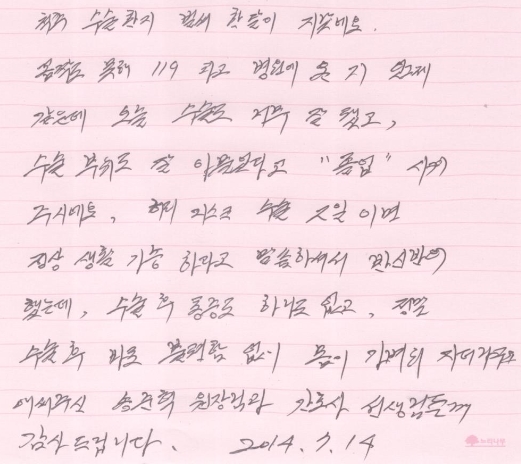 척추 수술한지 벌써 한달이 지났네요.
움직이도 못해 119 타고 병원에 온 지 엊그제
같은데 오늘 수술도 너무 잘 됐고,
수술 부위도 잘 아물었다고 "졸업" 시켜
주시네요, 허리 디스크 수술 7일 이면
정상 생활 가능 하다고 말씀하셔서 반신반의
했는데, 수술 후 통증도 하나도 없고, 정말
수술 후 바로 불편함 없이 몸이 가벼워
애써주신 원장님과 간호사 선생님들께
감사 드립니다. 2014. 7. 14